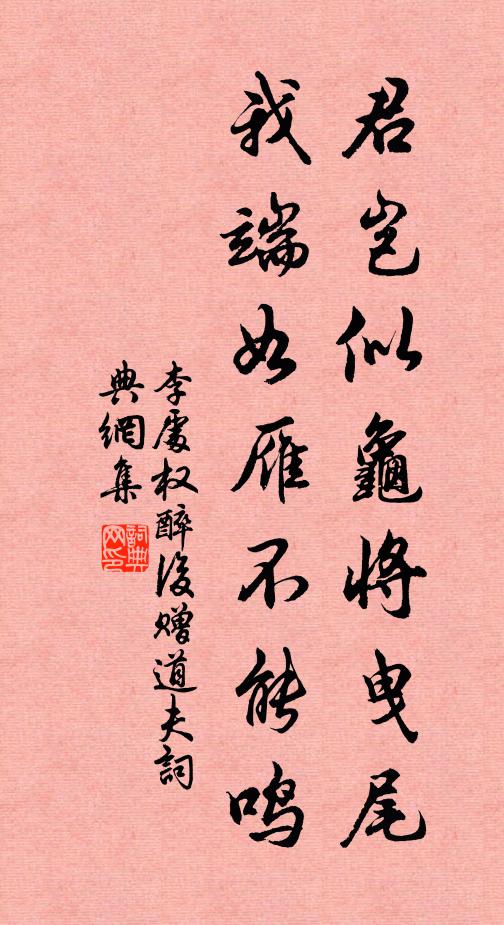 君岂似龜將曳尾
我端如雁不能鸣
李處权醉後赠道夫詞
典網集
詞典网印